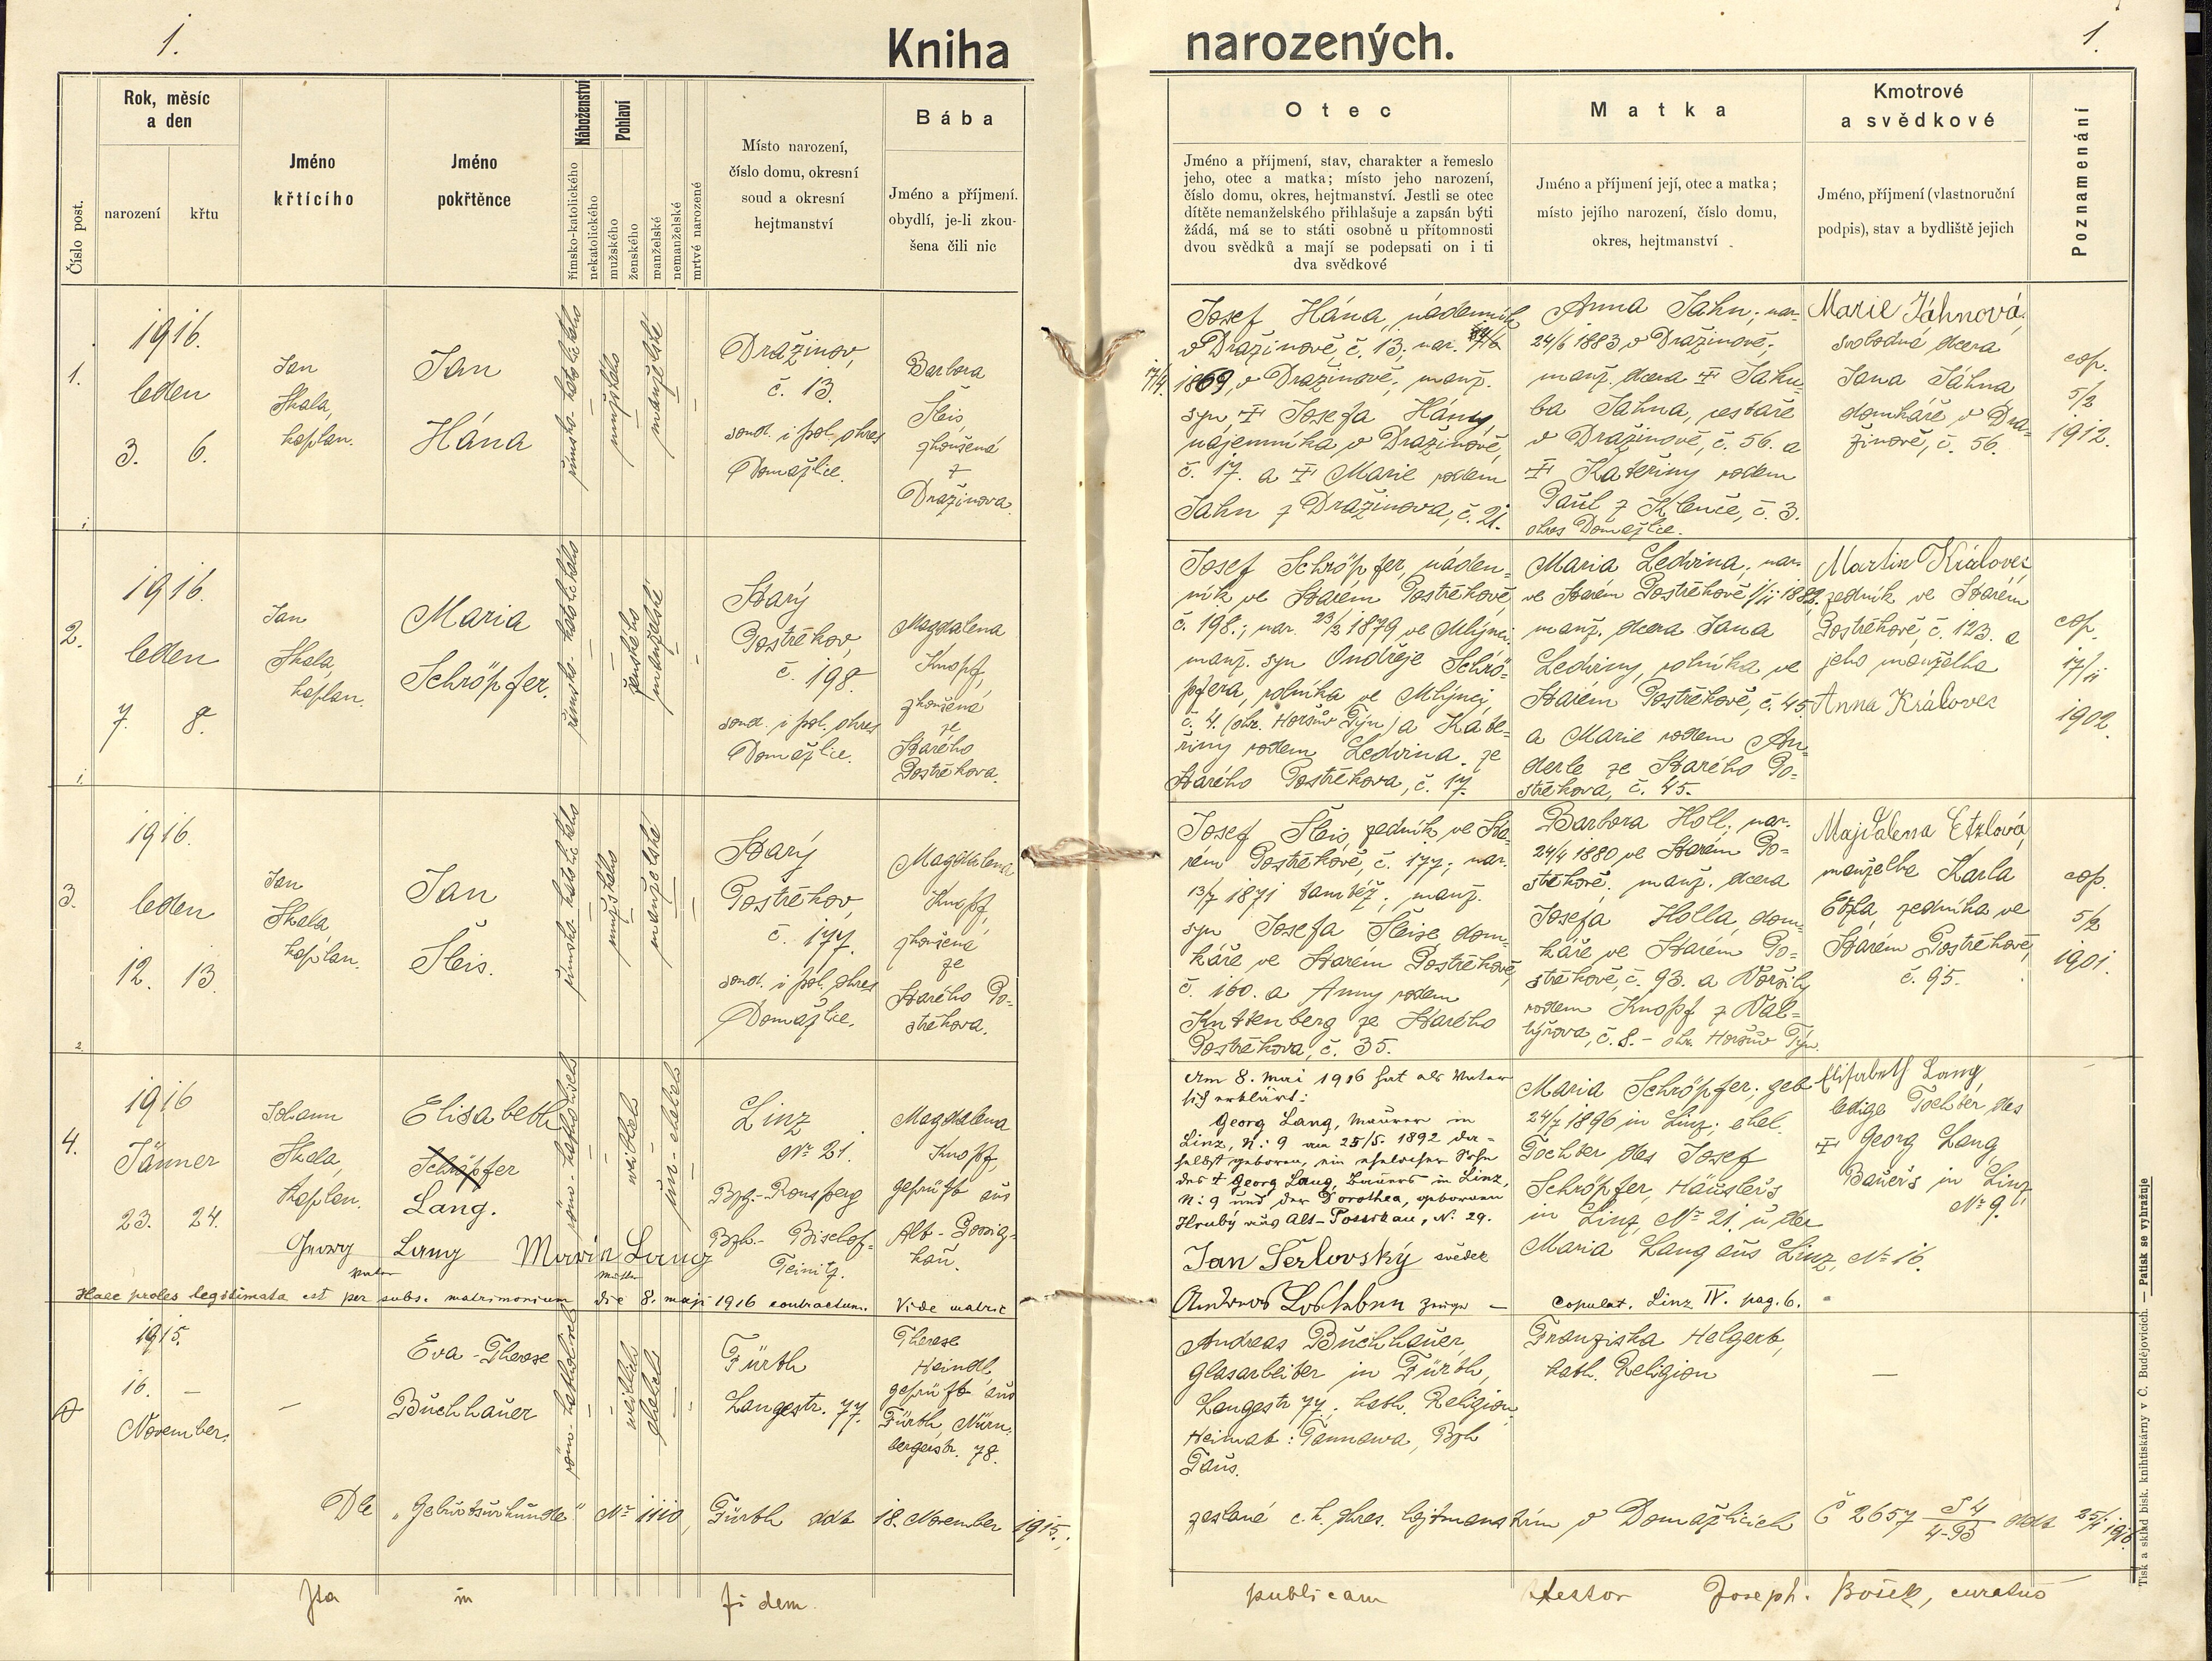 1.
Kniha
narozených.
1.
Číslo post.
Rok, měsíc
a den
narození
křtu
Jméno
křtícího
Jméno
pokřtěnce
Náboženství
římsko-katolického
nekatolického
Pohlaví
mužského
ženského
manželské
nemanželské
mrtvé narozené
Místo narození,
číslo domu, okresní
soud a okresní
hejtmanství
Bába
Jméno a příjmení.
obydlí, je-li zkou-
šena čili nic
Otec
Jméno a příjmení, stav, charakter a řemeslo
jeho, otec a matka; místo jeho narození,
číslo domu, okres, hejtmanství. Jestli se otec
dítěte nemanželského přihlašuje a zapsán býti
žádá, má se to státi osobně u přítomnosti
dvou svědků a mají se podepsati on i ti
dva svědkové
Matka
Jméno a příjmení její, otec a matka;
místo jejího narození, číslo domu,
okres, hejtmanství
Kmotrové
a svědkové
Jméno, příjmení (vlastnoruční
podpis), stav a bydliště jejich
Poznamenání
1.
1916.
leden
3. 6.
Jan
Skala,
kaplan.
Jan
Hána
římsko-katolického
mužského
manželské
Dražinov,
č. 13.
soud. i pol. okres
Domažlice.
Barbora
Šleis,
zkoušená
z
Dražinova.
Josef Hána, nádenník
v Dražinově, č. 13; nar.
17/4 1869, v Dražinově; manž.
syn † Josefa Hány,
nájemníka v Dražinově,
č. 17. a † Marie rodem
Jahn z Dražinova, č. 21.
Anna Jahn; nar.
24/6 1883 v Dražinově;
manž. dcera † Jaku-
ba Jahna, cestáře
v Dražinově, č. 56. a
† Kateřiny rodem
Paul z Klenče, č. 3.
okres Domažlice.
Marie Jáhnová,
svobodná dcera
Jana Jáhna
domkáře v Dra-
žinově, č. 56.
cop.
5/2
1912.
2.
1916.
leden
7. 8.
Jan
Skala,
kaplan.
Maria
Schröpfer.
římsko-katolického
ženského
manželské
Starý
Postřekov,
č. 198.
soud. i pol. okres
Domažlice.
Magdalena
Knopf,
zkoušená
ze
Starého
Postřekova.
Josef Schröpfer, náden-
ník ve Starém Postřekově,
č. 198.; nar. 23/2 1879 ve Mlýnci.
manž. syn Ondřeje Schrö-
pfera, rolníka ve Mlýnci,
č. 4. (okr. Horšův Týn) a Kate-
řiny rodem Ledvina ze
Starého Postřekova, č. 17.
Maria Ledvina; nar.
ve Starém Postřekově 1/11 1882.
manž. dcera Jana
Ledviny, rolníka ve
Starém Postřekově, č. 45.
a Marie rodem An-
derle ze Starého Po-
střekova, č. 45.
Martin Královec
zedník ve Starém
Postřekově, č. 123. a
jeho manželka
Anna Královec
cop.
17/11
1902.
3.
1916.
leden
12. 13.
Jan
Skala,
kaplan.
Jan
Šleis.
římsko-katolického
mužského
manželské
Starý
Postřekov,
č. 177.
soud. i pol. okres
Domažlice.
Magdalena
Knopf,
zkoušená
ze
Starého Po-
střekova.
Josef Šleis, zedník ve Sta-
rém Postřekově, č. 177; nar.
13/7 1871 tamtéž; manž.
syn Josefa Šleise dom-
káře ve Starém Postřekově,
č. 160. a Anny rodem
Kuttenberg ze Starého
Postřekova, č. 35.
Barbora Holl; nar.
24/4 1880 ve Starém Po-
střekově. manž. dcera
Josefa Holla, dom-
káře ve Starém Po-
střekově, č. 93. a Voršily
rodem Knopf z Val-
týřova, č. 8. - okr. Horšův Týn.
Majdalena Etzlová,
manželka Karla
Etzla, zedníka ve
Starém Postřekově,
č. 95.
cop.
5/2
1901.
4.
1916
Jänner
23. 24.
Johann
Skala,
Kaplan.
Elisabeth
Schröpfer
Lang.
röm.-katholisch
weiblich
un-ehelich
Linz
Nr. 21.
Bzg.-Ronsperg
Bzh.- Bischof-
Teinitz.
Magdalena
Knopf,
geprüft aus
Alt-Possig-
kau.
Am 8. Mai 1916 hat als Vater
sich erklärt:
Georg Lang, Maurer in
Linz, N: 9 am 25/5. 1892 da-
selbst geboren, ein ehelicher Sohn
des † Georg Lang, Bauers in Linz,
N: 9 und der Dorothea, geborenen
Hrubý aus Alt-Possikau, N. 29.
Maria Schröpfer. geb
24/7 1896 in Linz; ehel.
Tochter des Josef
Schröpfer, Häuslers
in Linz, Nr. 21. u. der
Maria Lang aus Linz, Nr. 16.
Elisabeth Lang,
ledige Tochter des
† Georg Lang
Bauers in Linz
Nr. 9.
Georg Lang Maria Lang
Vater Mutter
Jan Šerlovský svědek
Haec proles legitimata est per subs. matrimonium die 8. maji 1916 contractum. Vide matric
Zeuge — copulat. Linz IV. pag. 6.
1915.
16. —
November.
Eva-Therese
Buchhauer
röm-katholisch
weiblich
ehelich
Fürth
Langestr. 77.
Therese
Heindl
geprüft aus
Fürth, Nürn-
bergerstr. 78.
Andreas Buchhauer,
Glasarbeiter in Fürth,
Langestr 77; kath. Religion
Heimat: Tannawa, Bzh
Taus.
Franziska Helgert,
kath. Religion
Dle „Geburtsurkunde" Nr. 1110, Fürth ddt 18. November 1915.,
zaslané c. k. okres. hejtmanstvím v Domažlicích Č 2657 ddt
Ita in fidem publicam testor Joseph. Bošek, curatus
Tisk a sklad bisk. knihtiskárny v Č. Budějovicích. — Patisk se vyhražuje